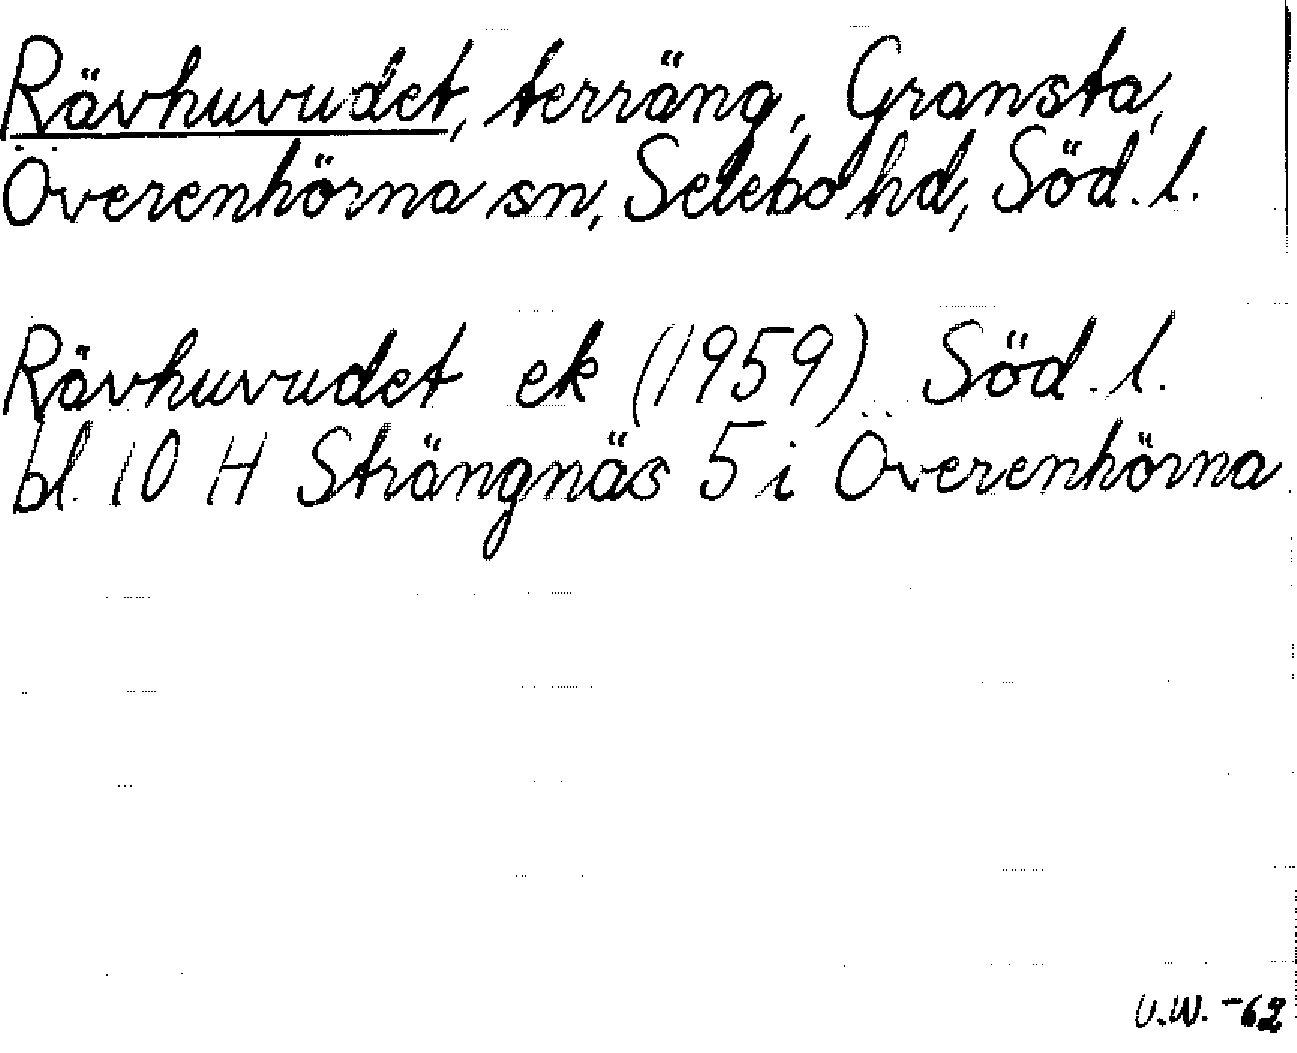 Rävhuvudet, terräng, Gransta,
Överenhörna sn, Selebo hd, Söd. l.
Rävhuvudet ek (1959) Söd. l.
bl. 10 H Strängnäs 5 i Överenhörna
U.W. -62